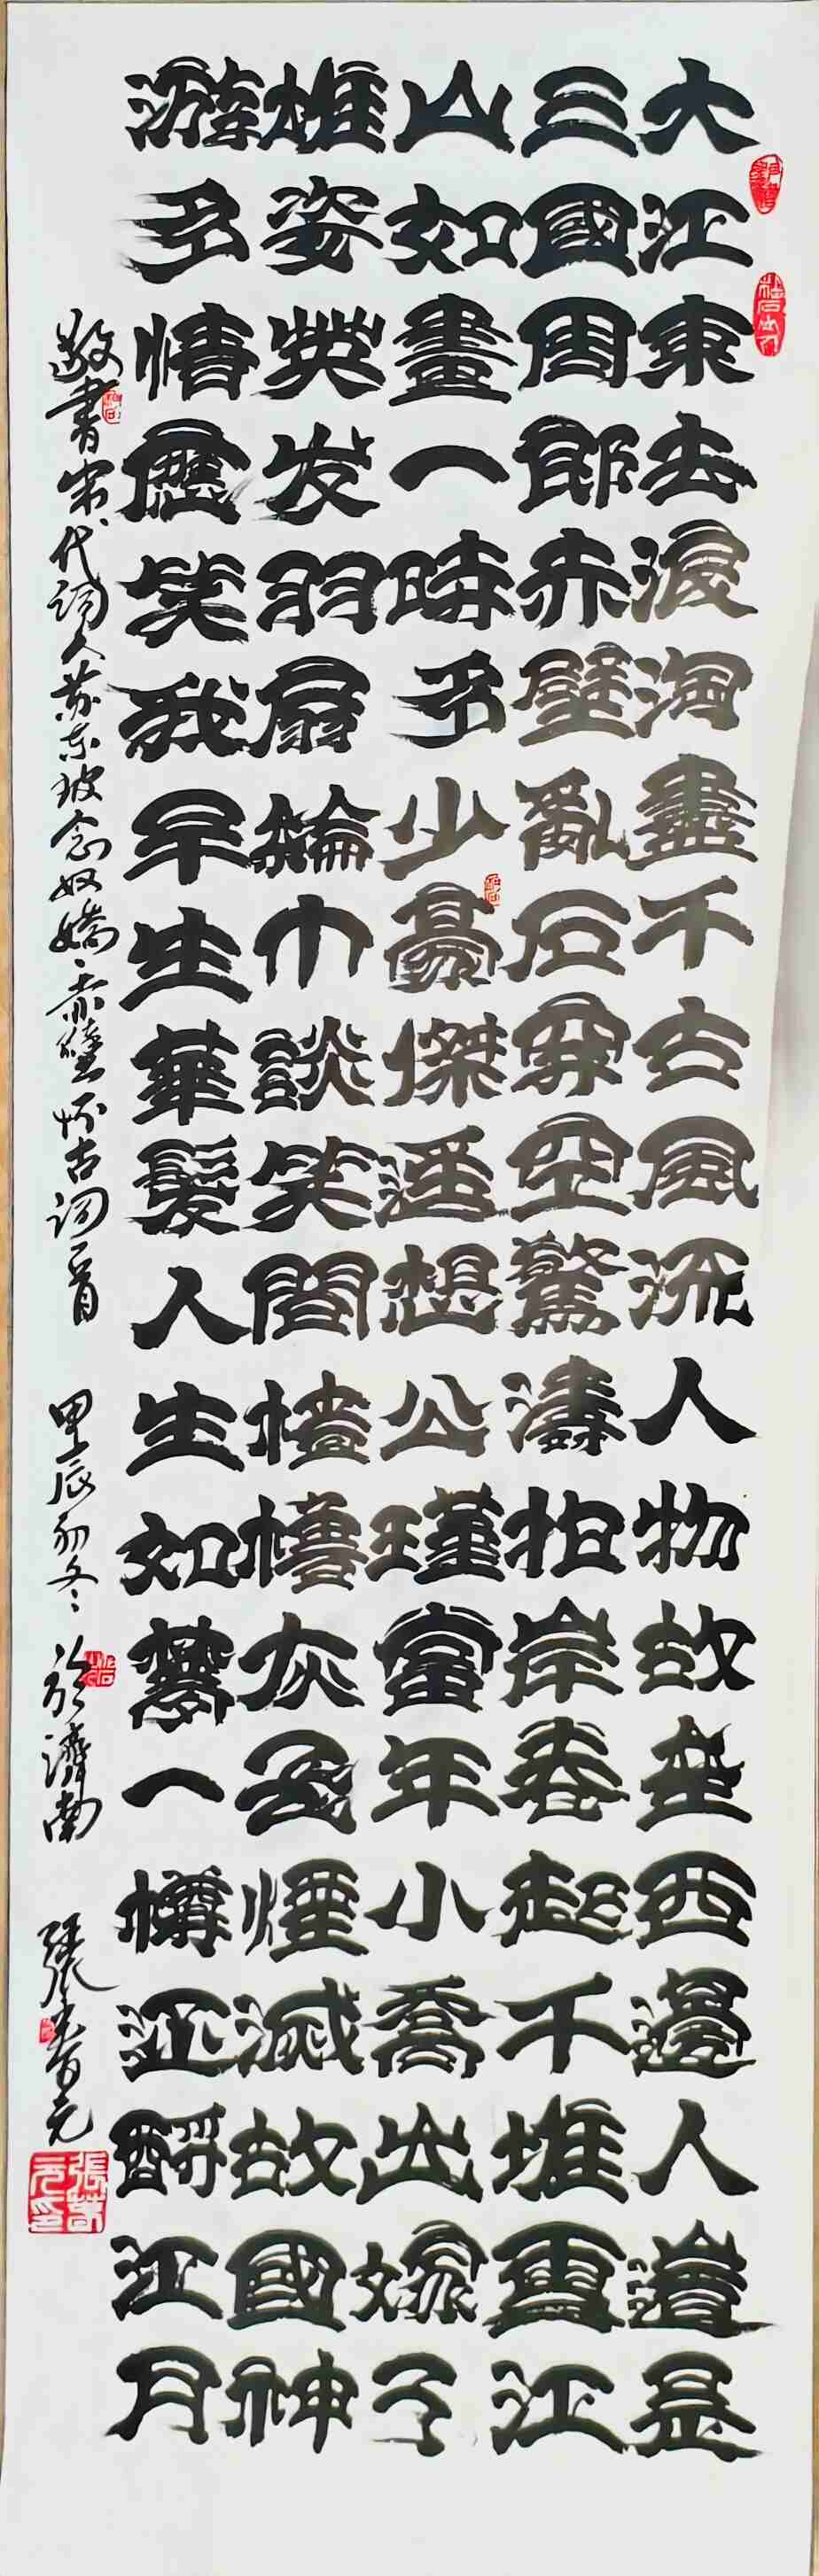 大江東去浪淘盡千古風流人物故垒西邊人道是
三國周郎赤壁亂石穿空驚濤拍岸卷起千堆雪江
山如畫一時多少豪傑遥想公瑾當年小喬出嫁了
雄姿英发羽扇綸巾談笑間檣櫓灰飛煙滅故國神
游多情應笑我早生華髮人生如夢一樽還酹江月
敬書宋代词人苏东坡念奴嬌、赤壁怀古词一首 甲辰初冬、於濟南 張